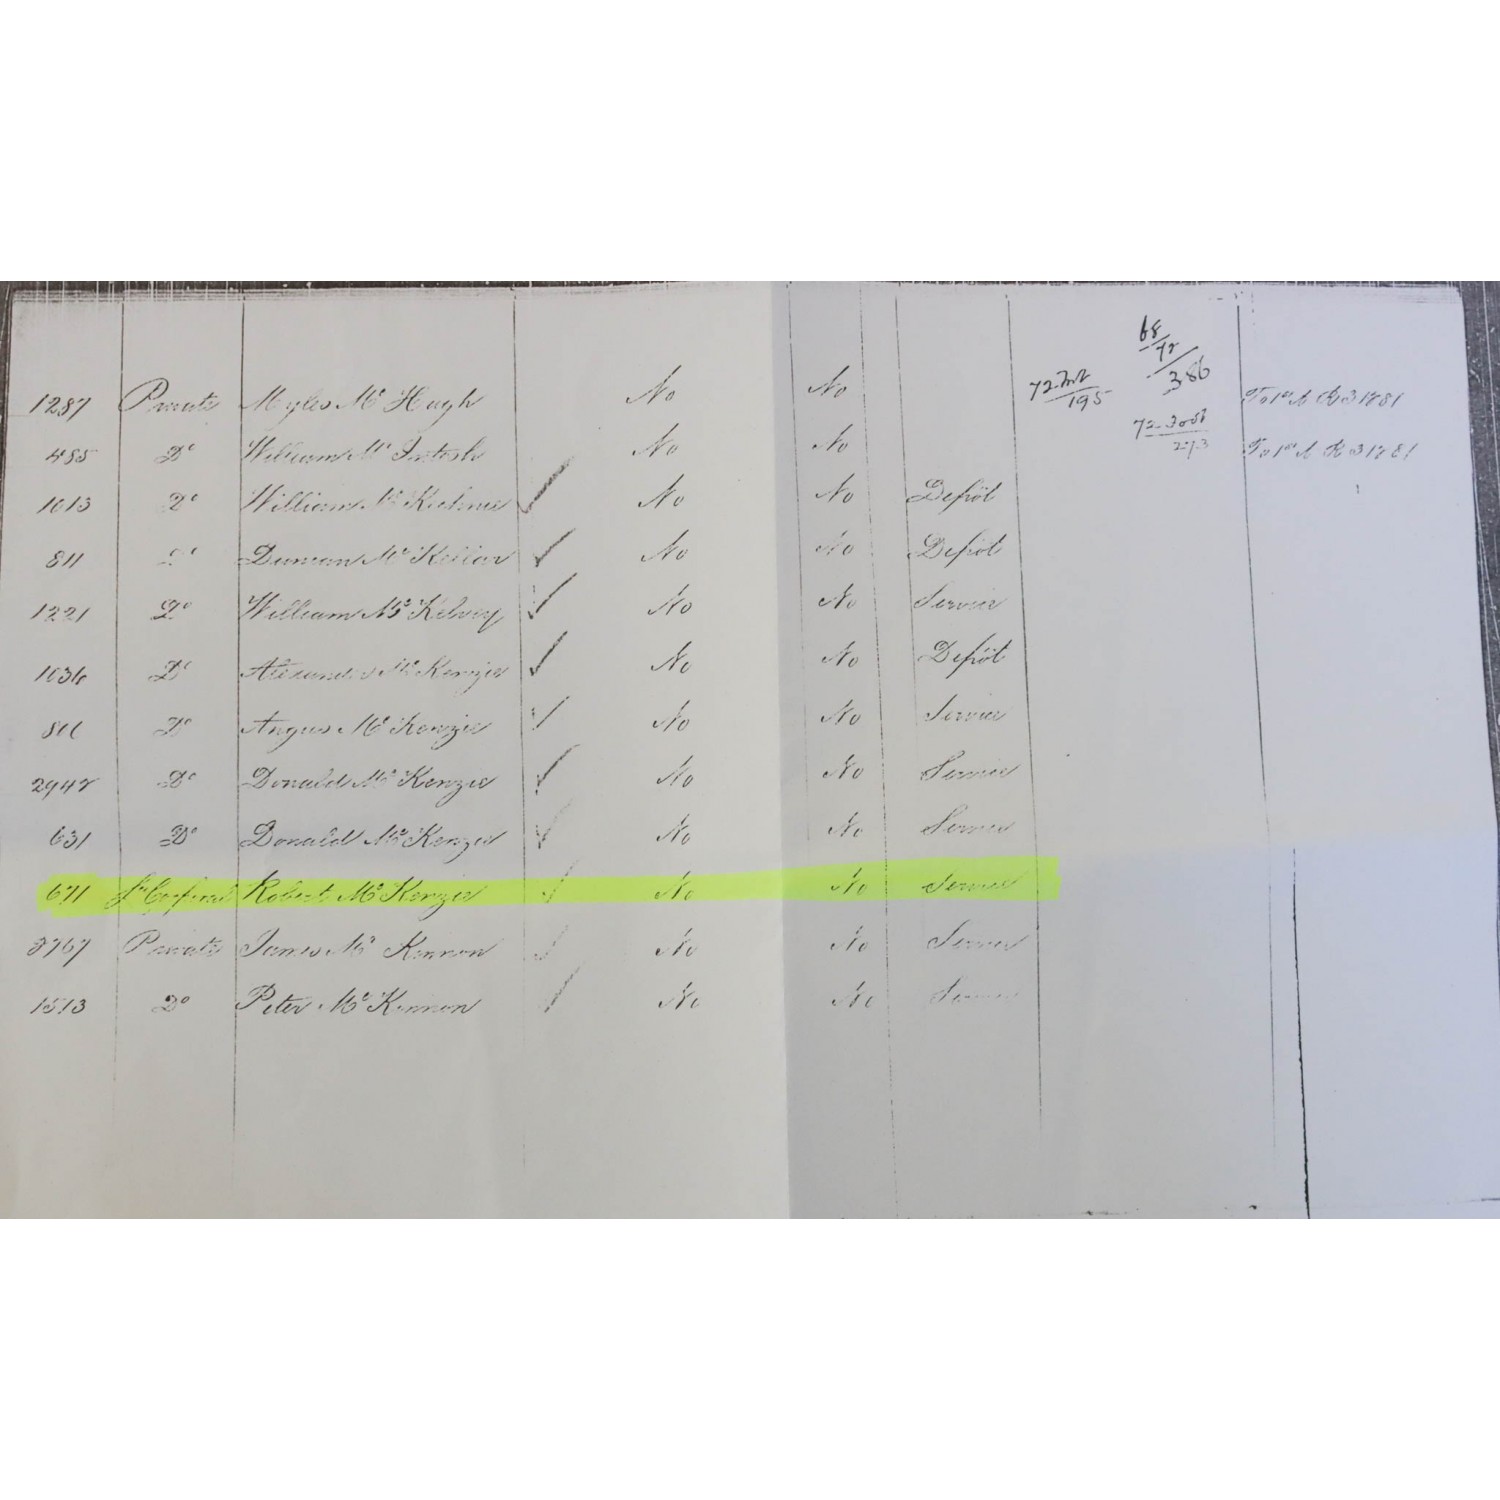 68/72/386
1287 Private Myles Mc Hugh No No 72 195
72 Foot 273
485 Do William Mc Intosh No No
1013 Do William Mc ✓ No No Depôt
811 Do Duncan Mc Kellar ✓ No No Depôt
1221 Do William Mc Kelvey ✓ No No Service
Do Alexander Mc Kenzie ✓ No No Depôt
Do Angus Mc Kenzie ✓ No No Service
Do Donald Mc Kenzie ✓ No No Service
631 Do Donald Mc Kenzie ✓ No No Service
671 Robert Mc Kenzie ✓ No No Service
Private James Mc Kinnon ✓ No No Service
1513 Do Peter Mc Kinnon ✓ No No Service